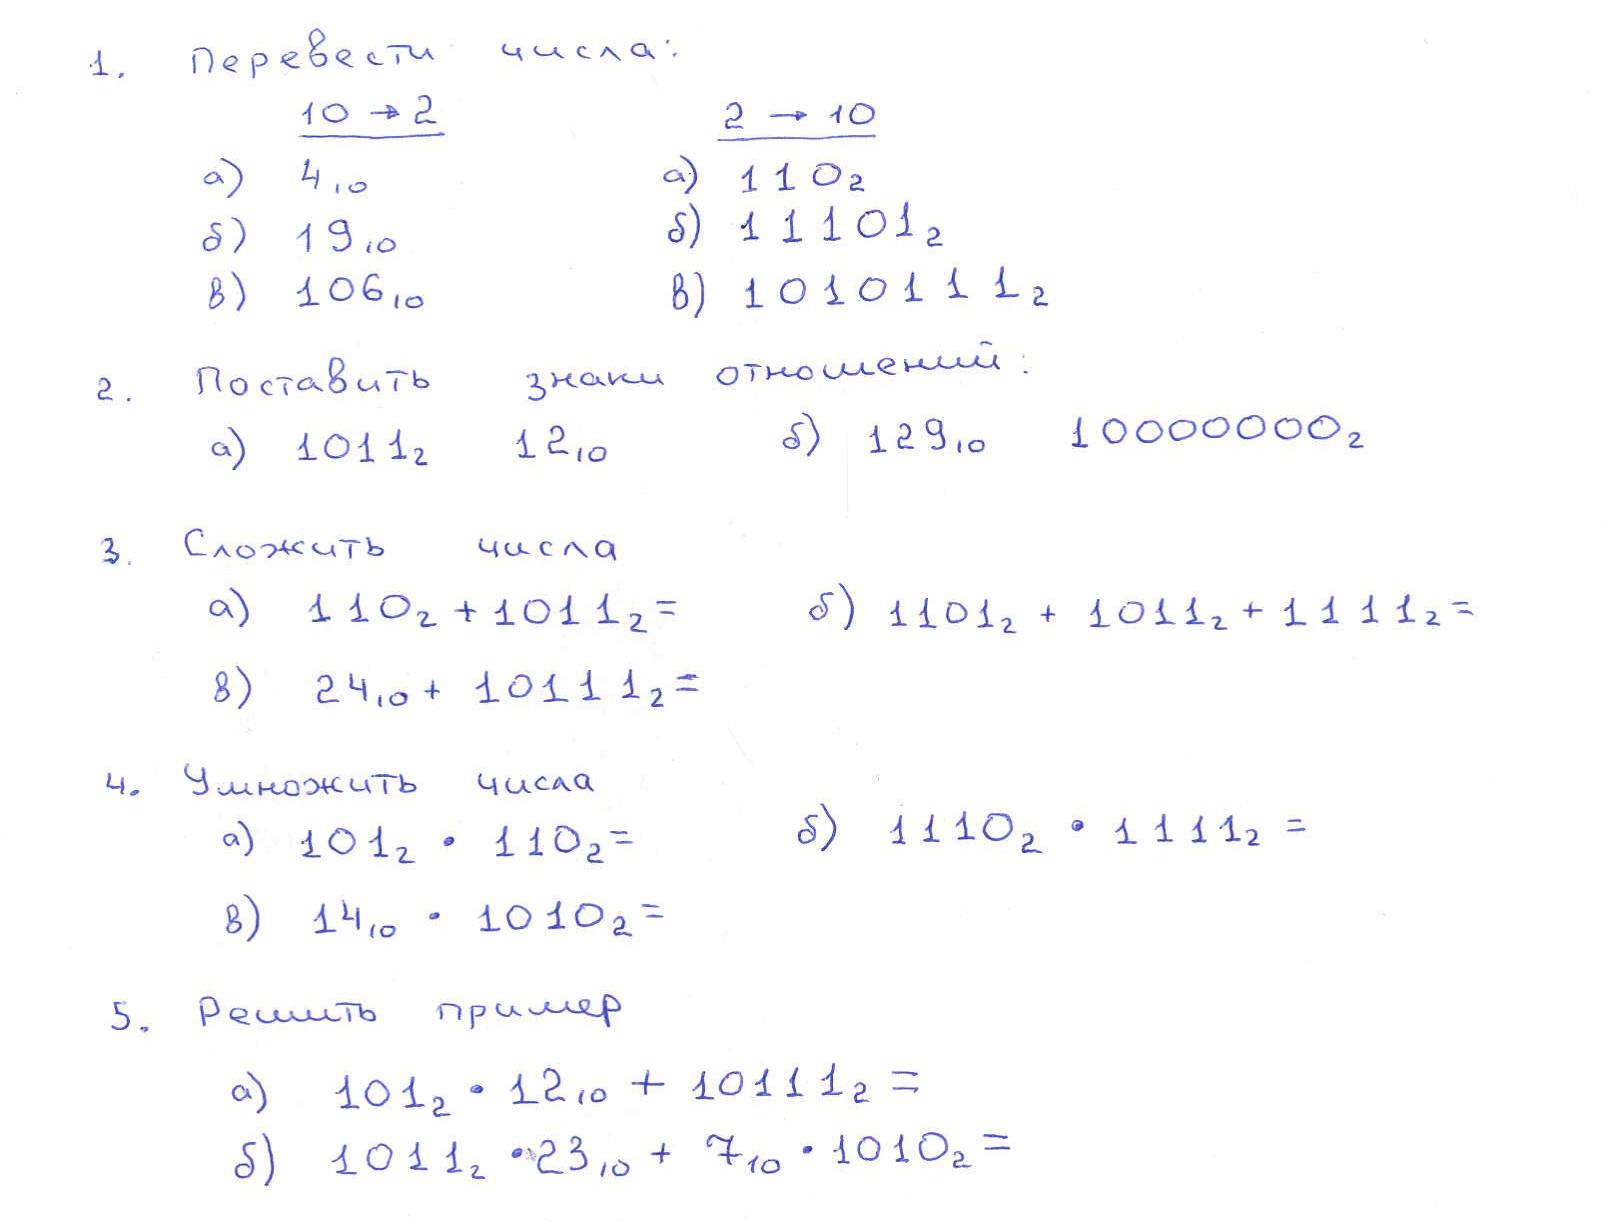 1. Перевести числа:
10 → 2 2 → 10
а) 4₁₀ а) 110₂
б) 19₁₀ б) 11101₂
в) 106₁₀ в) 1010111₂
2. Поставить знаки отношений:
а) 1011₂ 12₁₀ б) 129₁₀ 10000000₂
3. Сложить числа
а) 110₂ + 1011₂ = б) 1101₂ + 1011₂ + 1111₂ =
в) 24₁₀ + 10111₂ =
4. Умножить числа
а) 101₂ • 110₂ = б) 1110₂ • 1111₂ =
в) 14₁₀ • 1010₂ =
5. Решить пример
а) 101₂ • 12₁₀ + 10111₂ =
б) 1011₂ • 23₁₀ + 7₁₀ • 1010₂ =